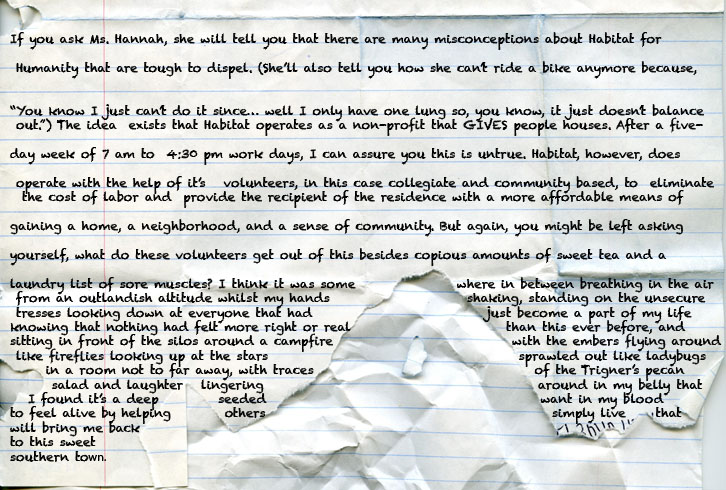 If you ask Ms. Hannah, she will tell you that there are many misconceptions about Habitat for
Humanity that are tough to dispel. (She'll also tell you how she can't ride a bike anymore because,
"You know I just can't do it since... well I only have one lung so, you know, it just doesn't balance
out.") The idea exists that Habitat operates as a non-profit that GIVES people houses. After a five-
day week of 7 am to 4:30 pm work days, I can assure you this is untrue. Habitat, however, does
operate with the help of it's volunteers, in this case collegiate and community based, to eliminate
the cost of labor and provide the recipient of the residence with a more affordable means of
gaining a home, a neighborhood, and a sense of community. But again, you might be left asking
yourself, what do these volunteers get out of this besides copious amounts of sweet tea and a
laundry list of sore muscles? I think it was some where in between breathing in the air
from an outlandish altitude whilst my hands shaking, standing on the unsecure
tresses looking down at everyone that had just become a part of my life
knowing that nothing had felt more right or real than this ever before, and
sitting in front of the silos around a campfire with the embers flying around
like fireflies looking up at the stars sprawled out like ladybugs
in a room not to far away, with traces of the Trigner's pecan
salad and laughter lingering around in my belly that
I found it's a deep seeded want in my blood
to feel alive by helping others simply live that
will bring me back
to this sweet
southern town.